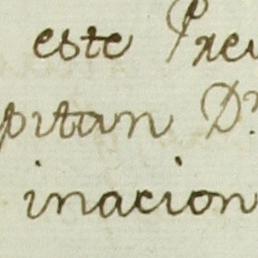 este Prev
pitan Dn
inacion